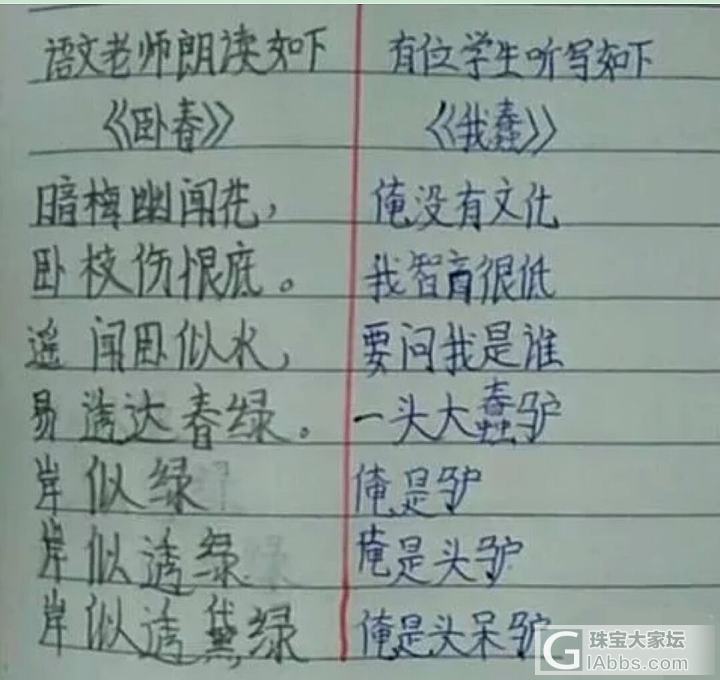 语文老师朗读如下
《卧春》
暗梅幽闻花，
卧枝伤恨底。
遥闻卧似水，
易透达春绿。
岸似绿
岸似透绿
岸似透黛绿
有位学生听写如下
《我蠢》
俺没有文化
我智商很低
要问我是谁
一头大蠢驴
俺是驴
俺是头驴
俺是头呆驴
珠宝大家坛
GIAbbs.com